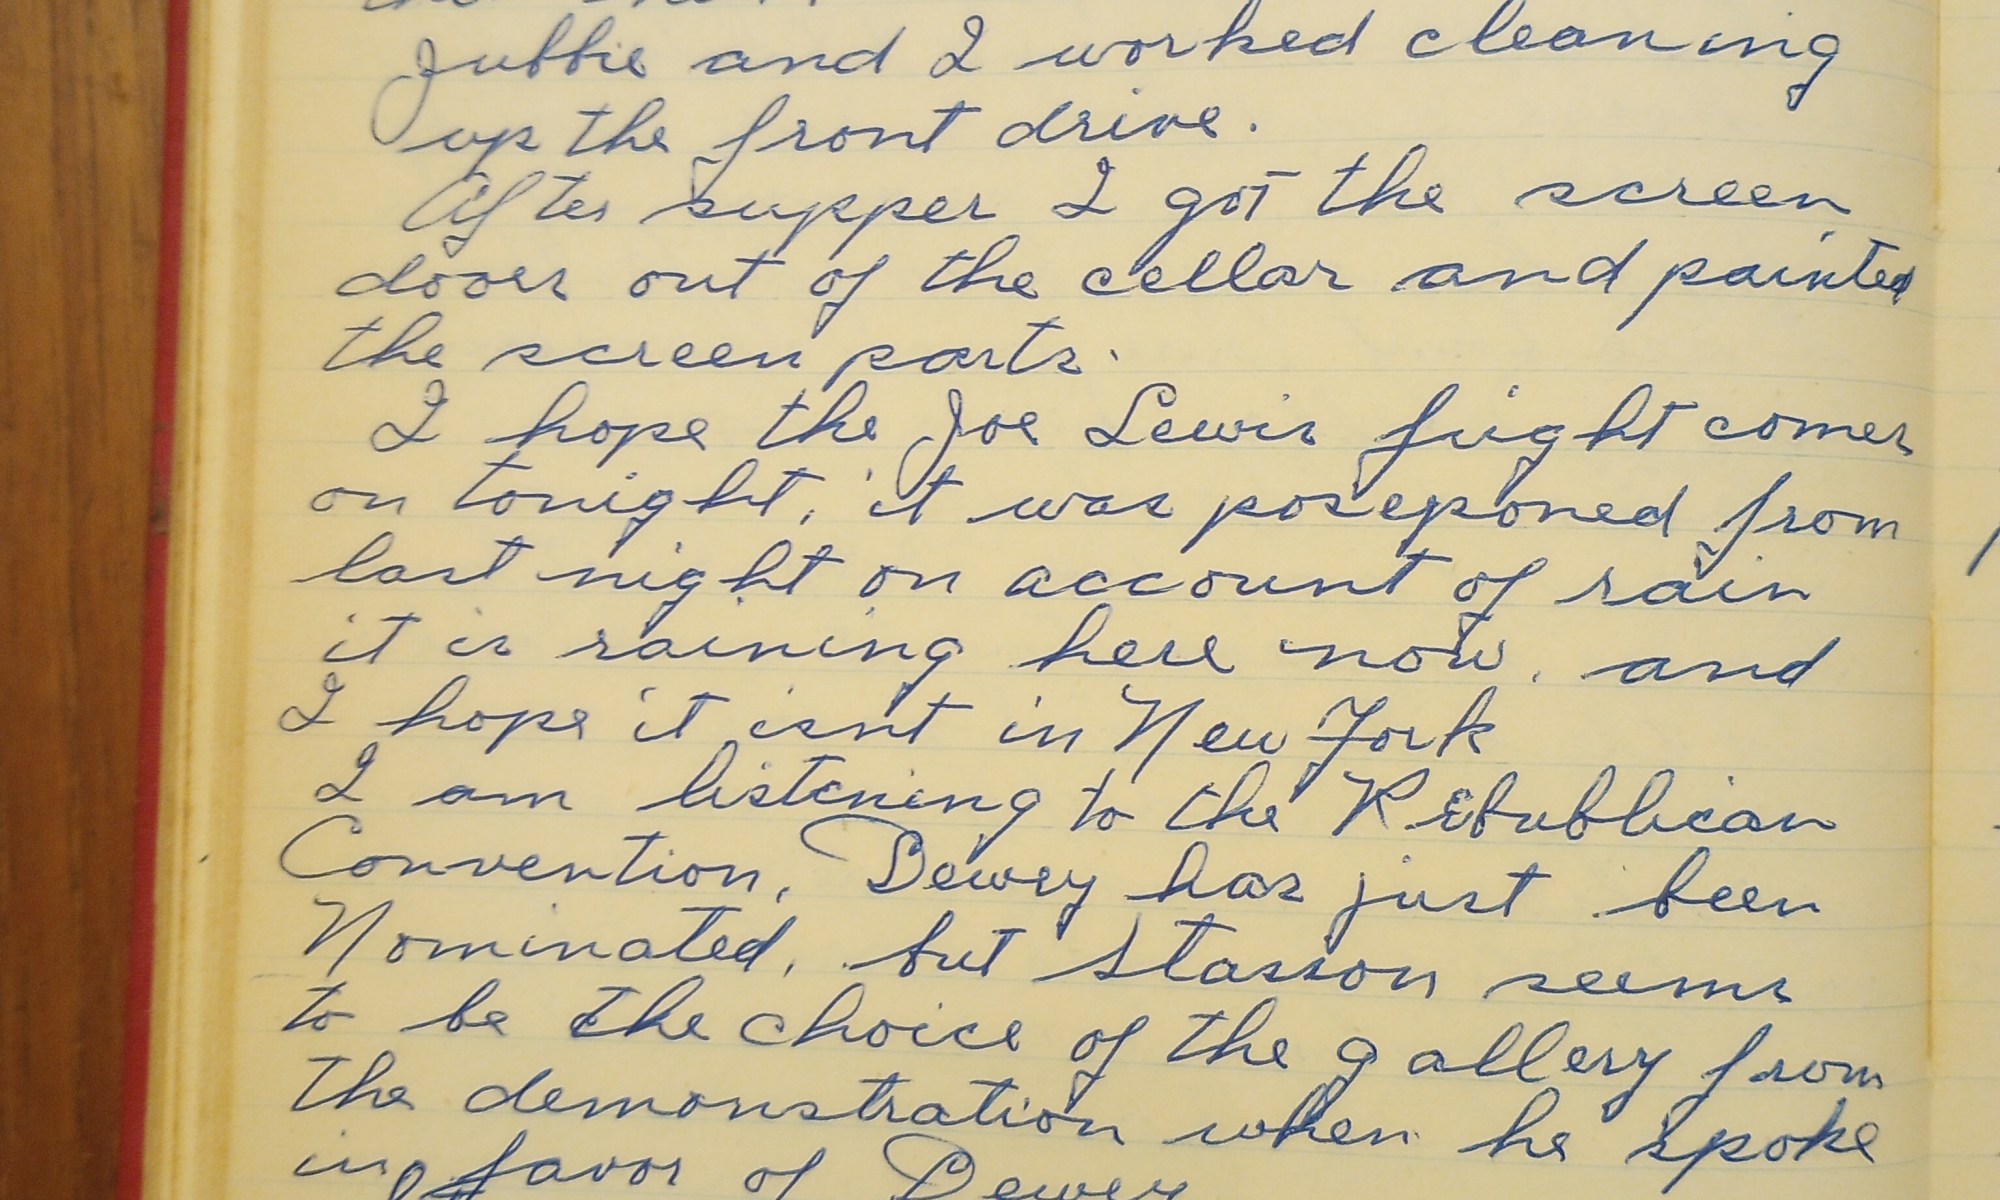 Jubbie and I worked cleaning
up the front drive.
After supper I got the screen
doors out of the cellar and painted
the screen parts.
I hope the Joe Lewis fight comes
on tonight, it was posponed from
last night on account of rain
it is raining here now, and
I hope it isnt in New York
I am listening to the Rebubblican
Convention, Dewey has just been
Nominated, but Stasson seems
to be the choice of the gallery from
the demonstration when he spoke
in favor of Dewey